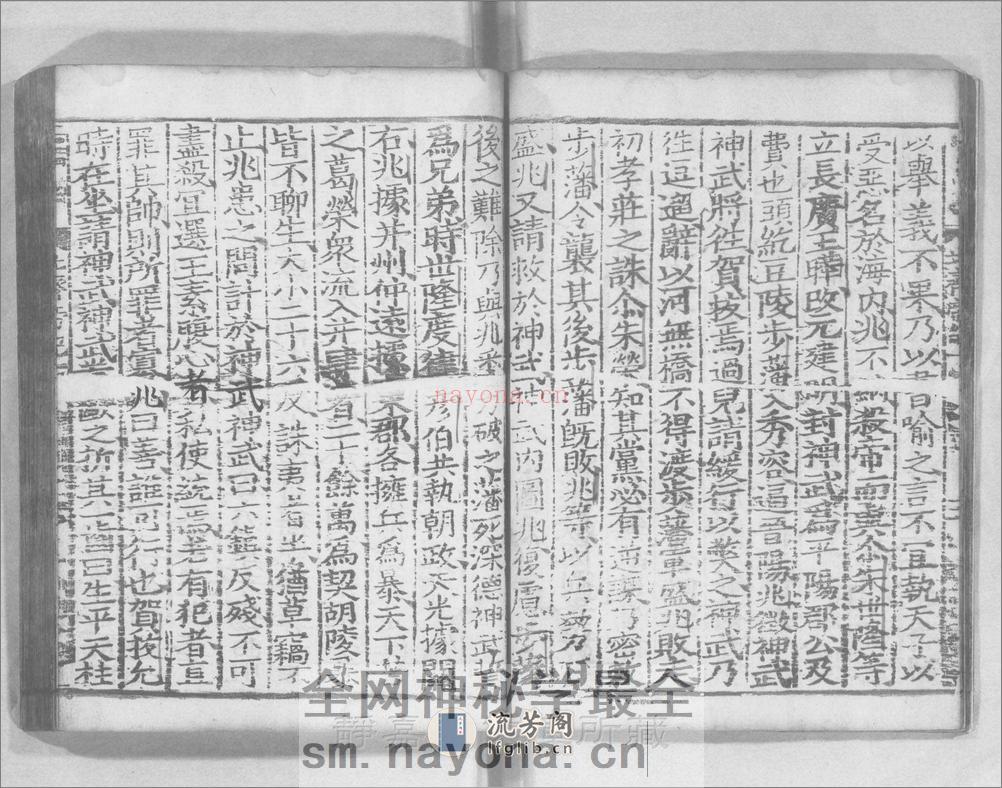 以舉義不果乃以書喻之言不宜執天子以
受惡名於海內兆不納殺帝而與尒朱世隆等
立長廣王曄改元建明封神武爲平陽郡公及
費也頭紇豆陵步藩入秀容逼晉陽兆徵神武
神武將往賀拔焉過兒請緩行以弊之神武乃
徃逗遛辭以河無橋不得渡步藩軍盛兆敗走
初孝莊之誅尒朱榮知其黨必有逆謀乃密敕
步藩令襲其後步藩旣敗兆等以兵勢日
盛兆又請救於神武神武內圖兆復慮步藩
後之難除乃與兆悉 破之藩死深德神武誓
爲兄弟時世隆度律彥伯共執朝政天光據關
右兆據并州仲遠據東郡各擁兵爲暴天下苦
之葛榮衆流入并肆者二十餘萬爲契胡陵暴
皆不聊生大小二十六反誅夷者半猶草竊不
止兆患之問計於神武神武曰六鎮反殘不可
盡殺宜選王素腹心者私使統焉若有犯者直
罪其帥則所罪者寡兆曰善誰可行也賀拔允
時在坐請神武神武拳毆之折其一齒曰生平天柱
全网神秘学最全
nayona.cn
流芳阁
lfglib.cn
所藏
sm.nayona.cn